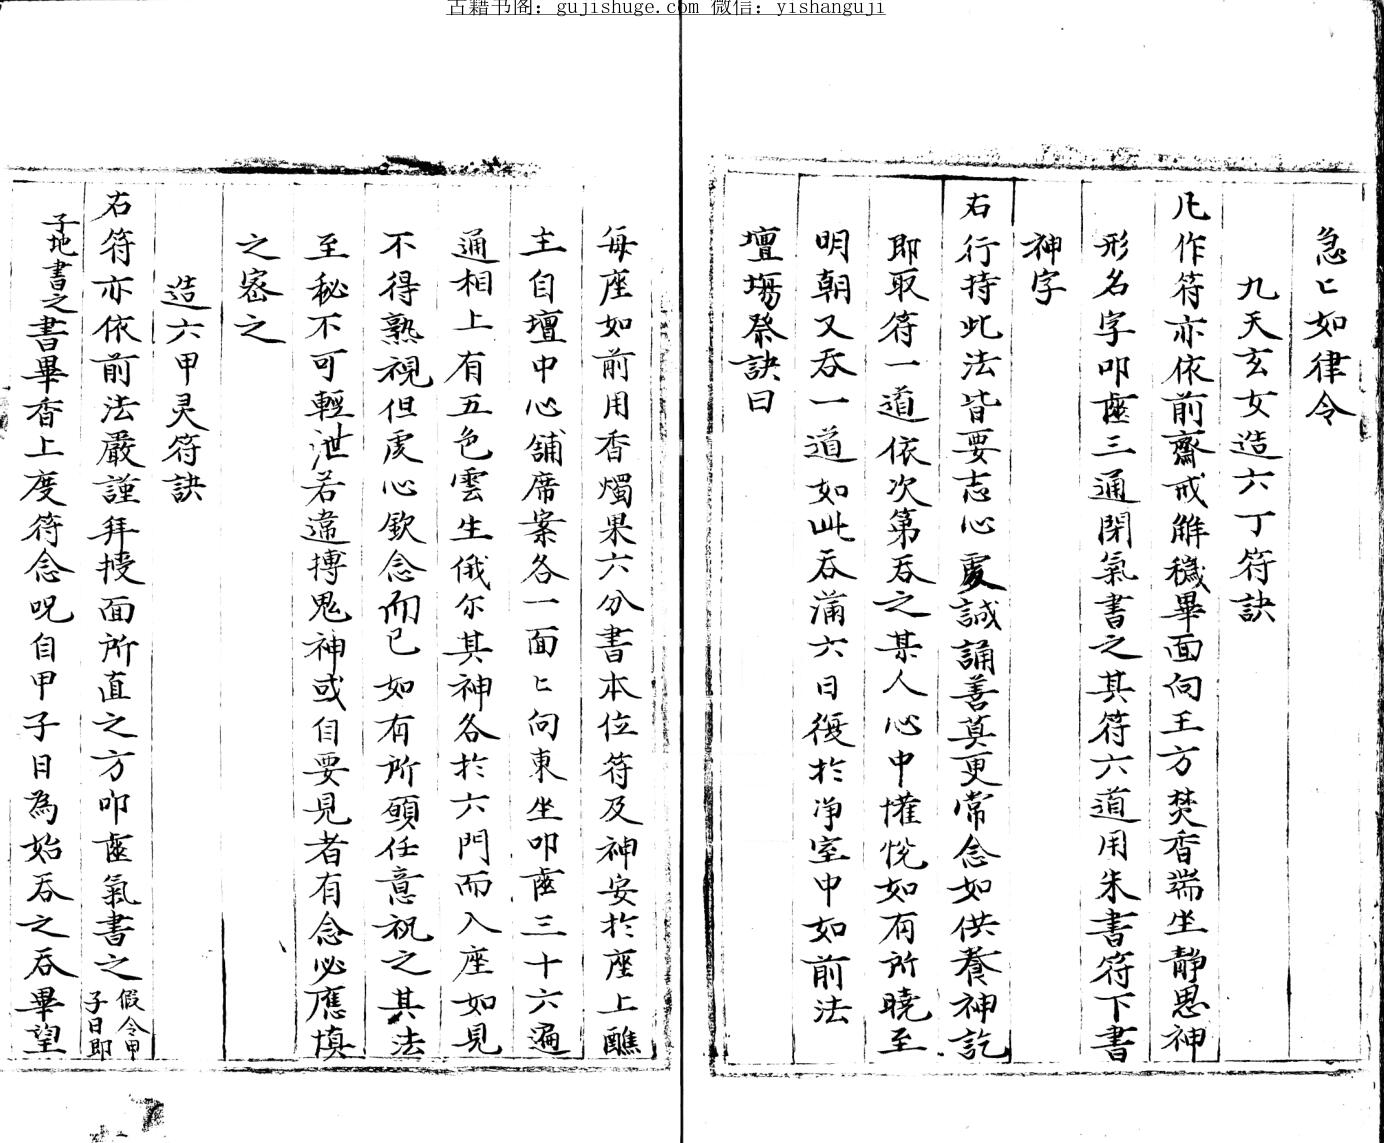 古籍书阁：gujishuge.com 微信：yishanguji
急〻如律令
九天玄女造六丁符訣
凡作符亦依前齋戒解穢畢面向王方焚香端坐靜思神
形名字叩齒三通閉氣書之其符六道用朱書符下書
神字
右行持此法皆要志心虔誠誦善莫更常念如供養神訖
即取符一道依次第吞之某人心中懽悅如有所曉至
明朝又吞一道如此吞滿六日復於净室中如前法
壇塲祭訣曰
每座如前用香燭果六分書本位符及神安於座上醮
主自壇中心舖席案各一面〻向東坐叩齒三十六遍
通相上有五色雲生俄尔其神各於六門而入座如見
不得熟視但虔心欽念而已如有所願任意祝之其法
至秘不可輕泄若違摶鬼神或自要見者有念必應慎
之宻之
造六甲灵符訣
右符亦依前法嚴謹拜授面所直之方叩齒氣書之假令甲子日即
子地書之書畢香上度符念呪自甲子日為始吞之吞畢望